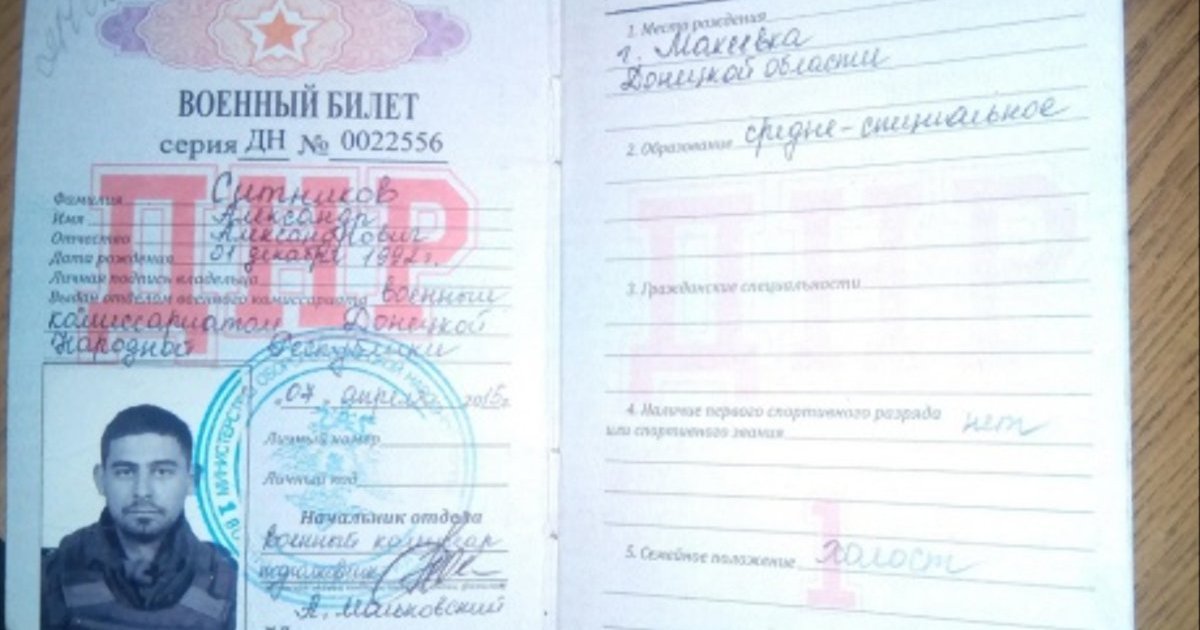 ВОЕННЫЙ БИЛЕТ
серия ДН № 0022556
ДНР
Фамилия Ситников
Имя Александр
Отчество Александрович
Дата рождения 31 декабря 1992 г.
Личная подпись владельца
Выдан отделом военного комиссариата военный
комиссариатом Донецкой
Народный Республики
"07" апреля 2015г.
Личный номер
Личный код
Начальник отдела
военный комиссар
подполковник
А. Маньковский
МИНИСТЕРСТВО ОБОРОНЫ
1. Место рождения
г. Макеевка
Донецкой области
2. Образование средне-специальное
ДНР
3. Гражданские специальности
4. Наличие первого спортивного разряда
или спортивного звания нет
5. Семейное положение холост
1